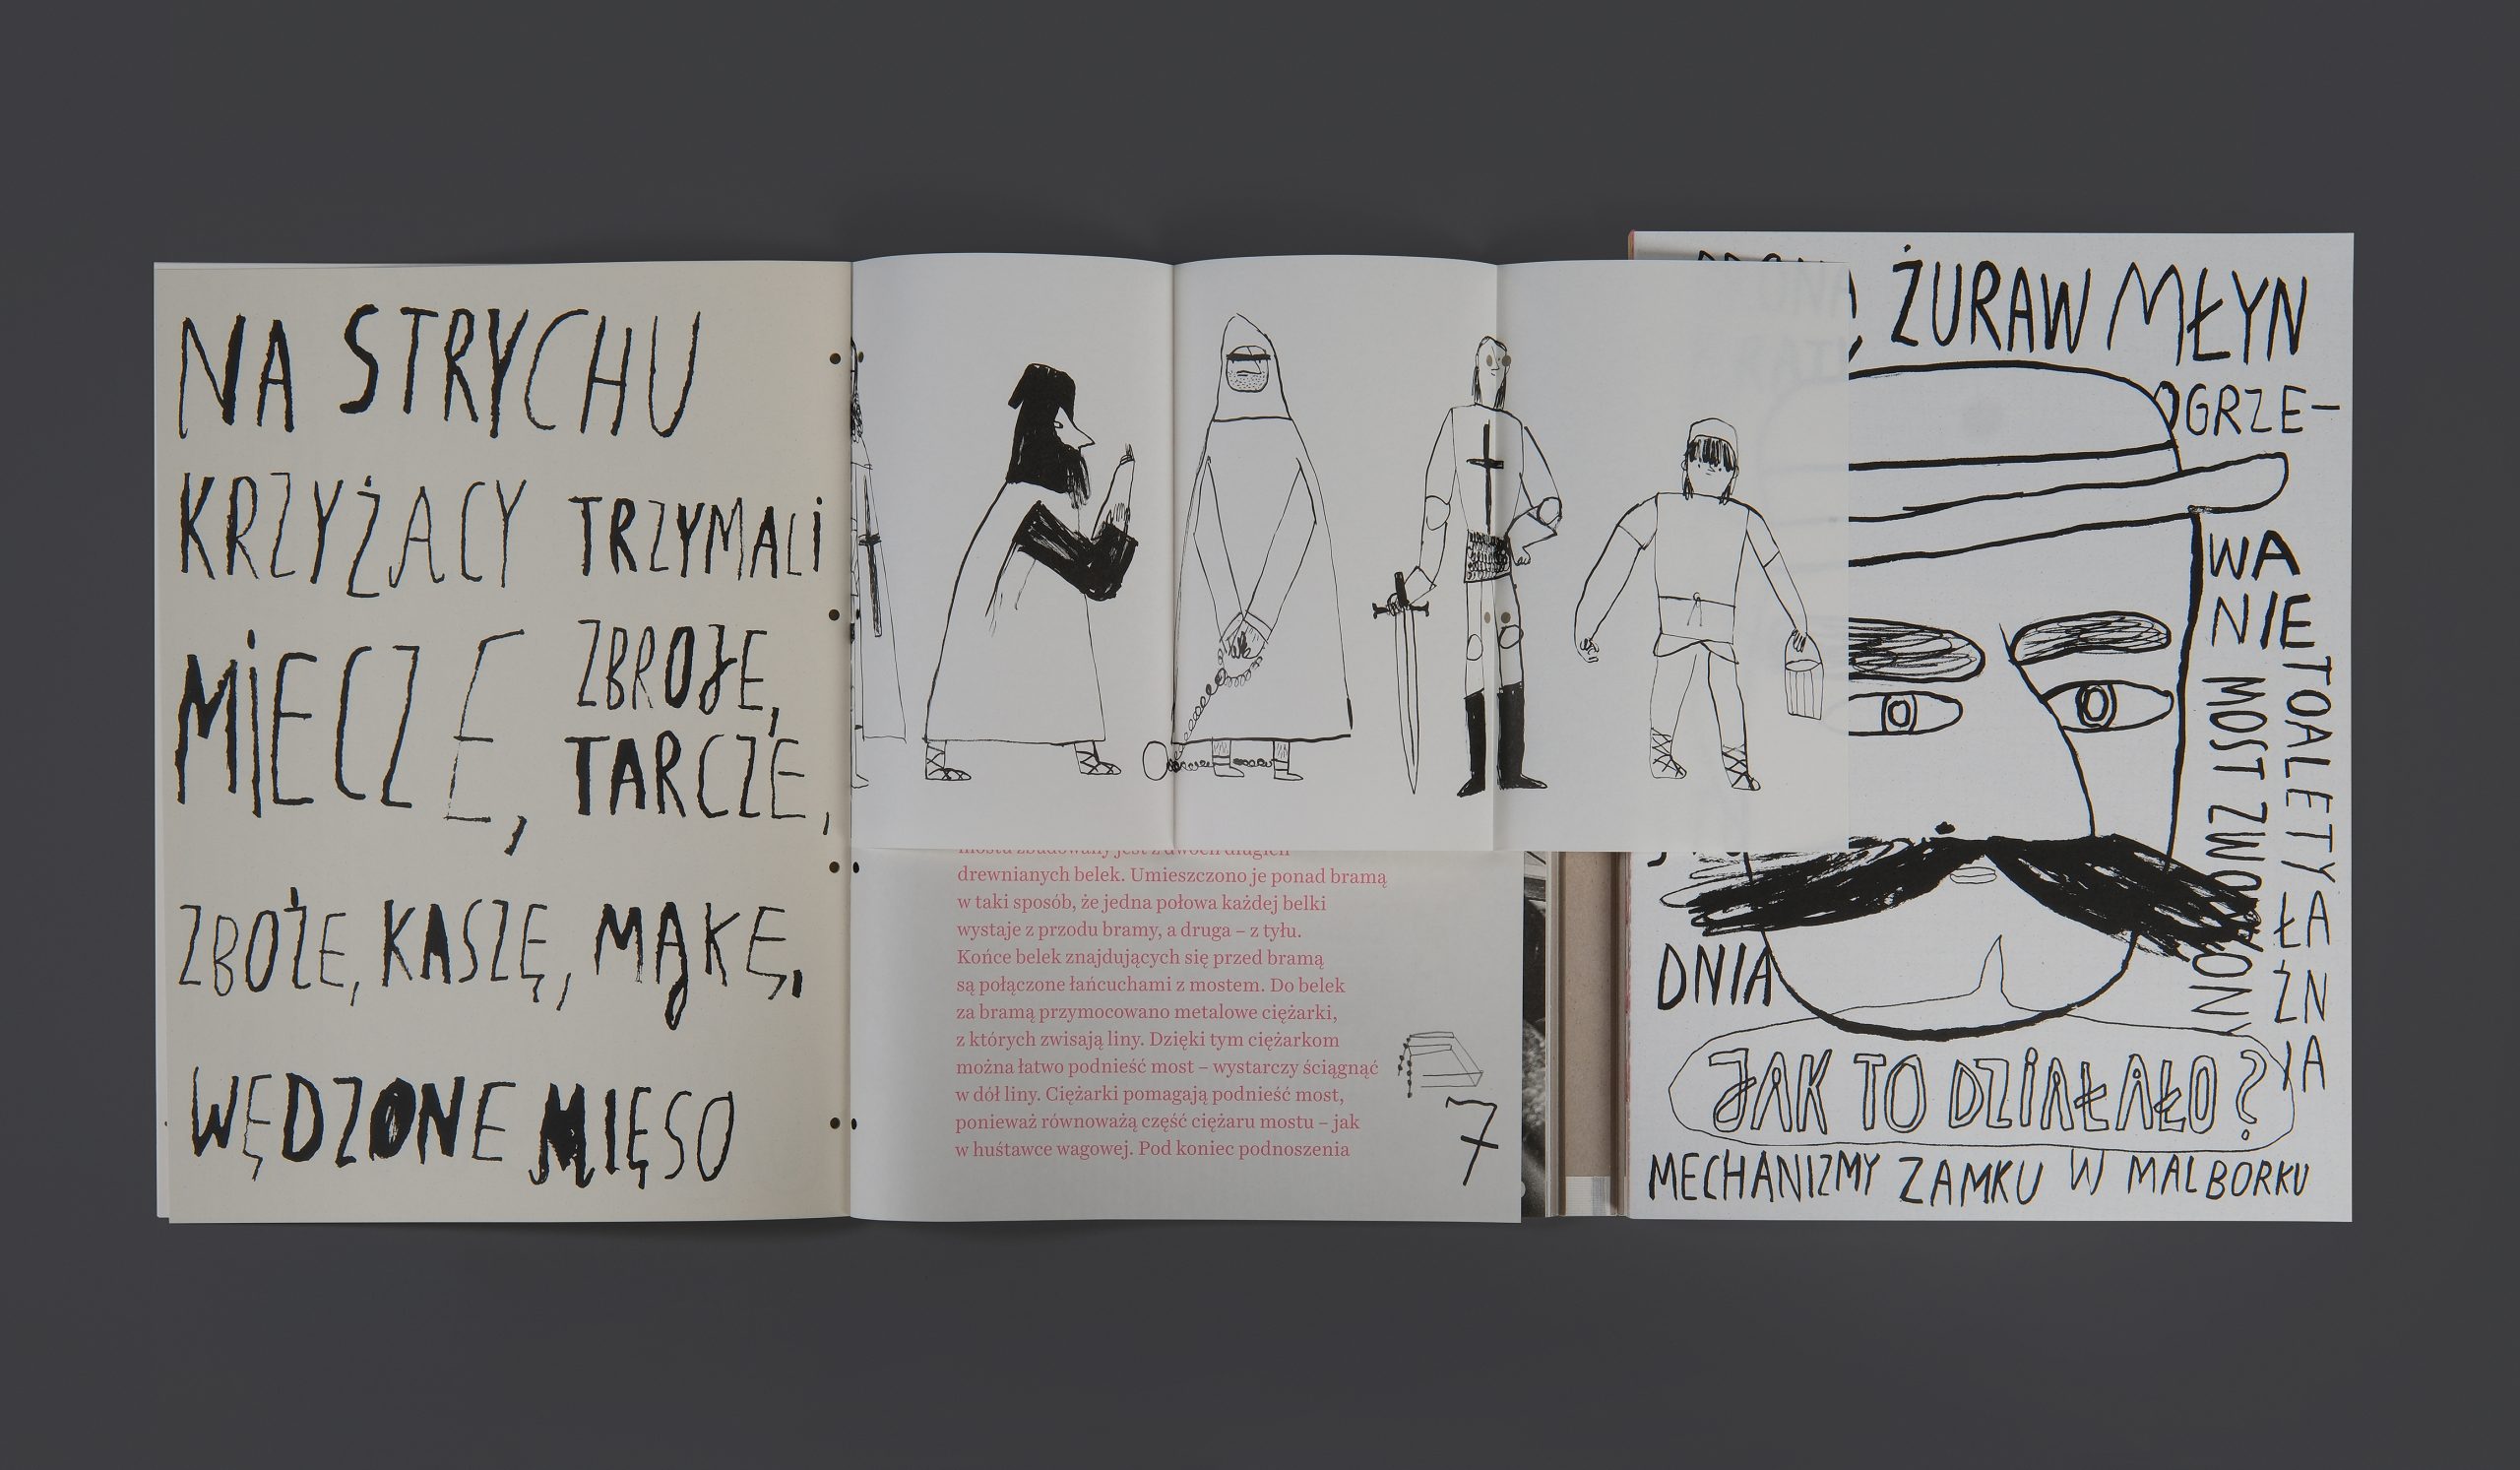 NA STRYCHU
KRZYŻACY TRZYMALI
MIECZE, ZBROJE,
TARCZE,
ZBOŻE, KASZĘ, MĄKĘ,
WĘDZONE MIĘSO
mostu zbudowany jest z dwóch długich
drewnianych belek. Umieszczono je ponad bramą
w taki sposób, że jedna połowa każdej belki
wystaje z przodu bramy, a druga – z tyłu.
Końce belek znajdujących się przed bramą
są połączone łańcuchami z mostem. Do belek
za bramą przymocowano metalowe ciężarki,
z których zwisają liny. Dzięki tym ciężarkom
można łatwo podnieść most – wystarczy ściągnąć
w dół liny. Ciężarki pomagają podnieść most,
ponieważ równoważą część ciężaru mostu – jak
w huśtawce wagowej. Pod koniec podnoszenia
7
, ŻURAW MŁYN
OGRZE-
WA
NIE
TOALETY
MOST ZWODZONY
ŁA
ŹN
IA
DNIA
JAK TO DZIAŁAŁO?
MECHANIZMY ZAMKU W MALBORKU